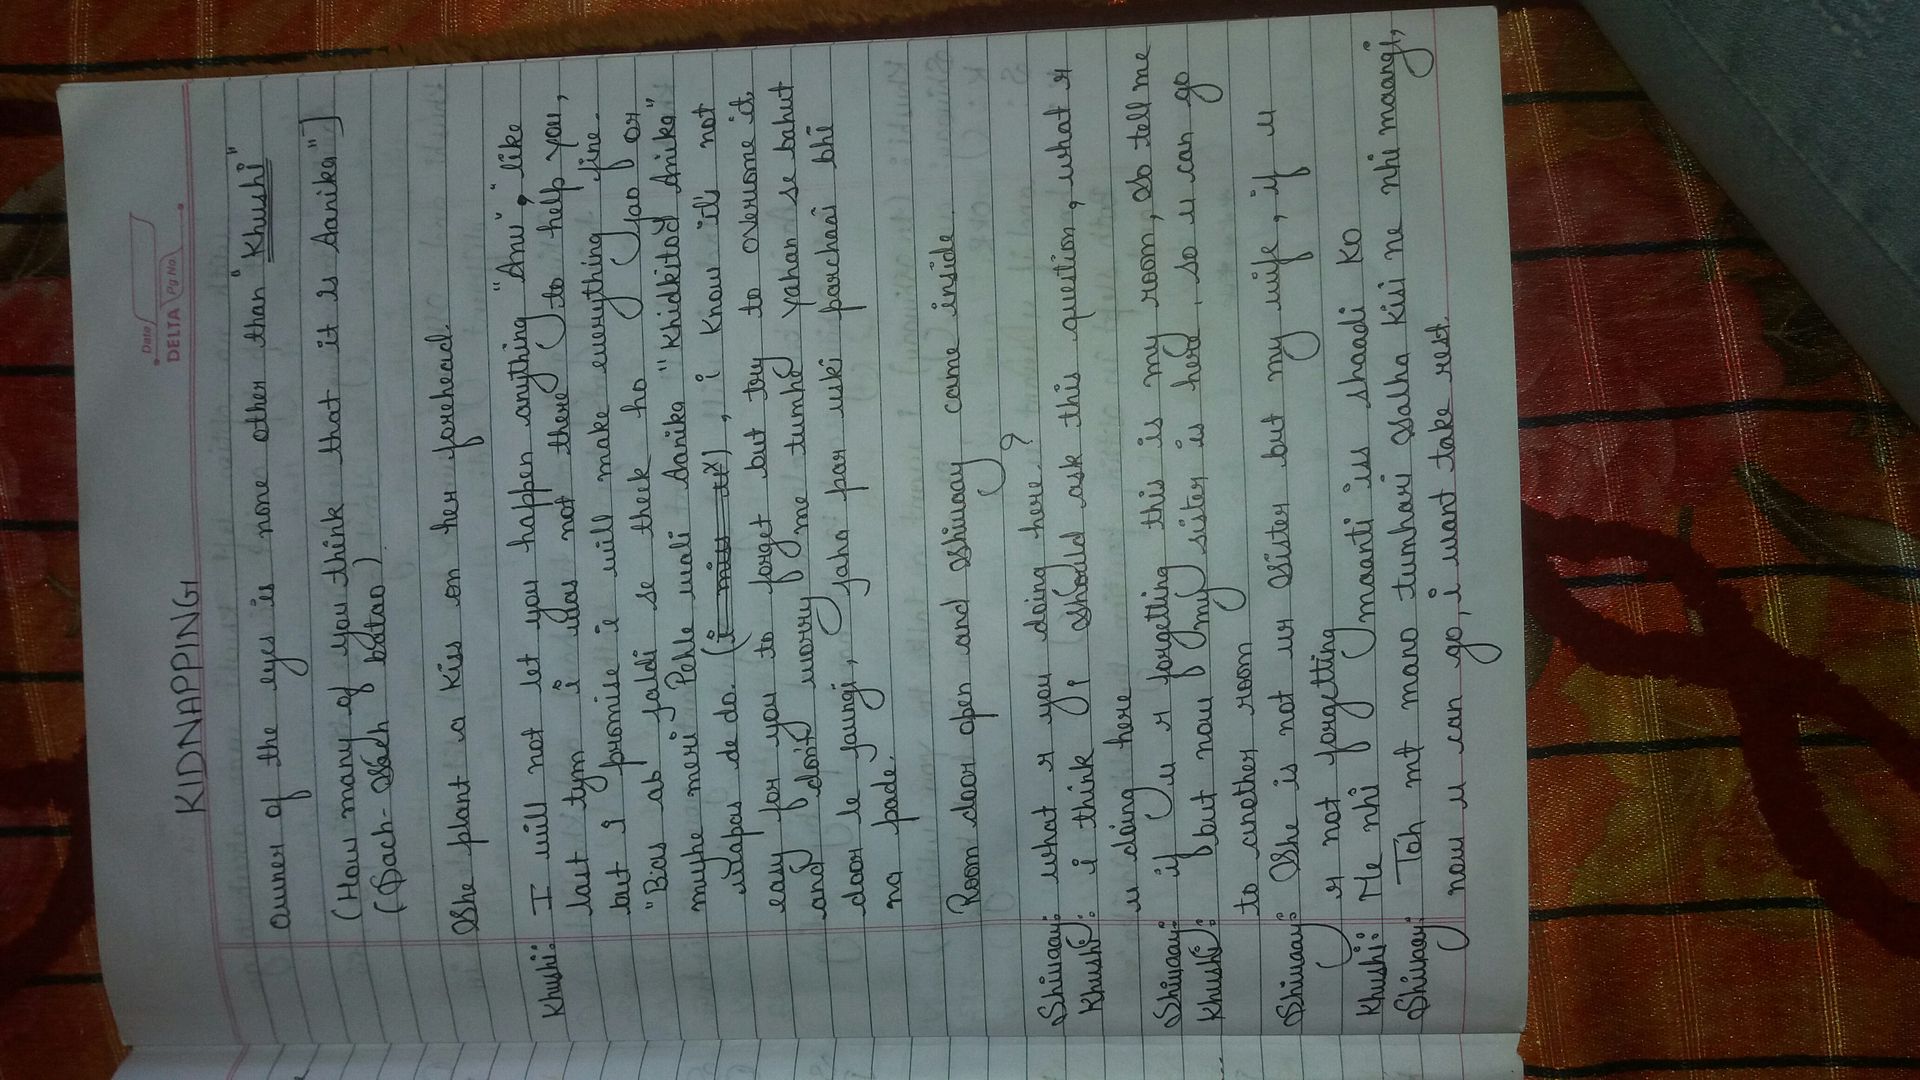 Date
DELTA Pg No.
KIDNAPPING
owner of the eyes is none other than "Khushi"
(How many of you think that it is Aanika"]
(Sach-Sach batao)
She plant a kiss on her forehead.
Khushi: I will not let you happen anything "Anu", like
last tym i was not there to help you,
but I promise i will make everything fine.
"Bias ab jaldi se theek ho jao or
mujhe meri Pehle wali Aanika "Khidkitod Anika"
wapas de do. (i miss it), i know it's not
easy for you to forget but try to overcome it
and don't worry me tumhe yahan se bahut
door le jaungi, jaha par uski parchaai bhi
na pade.
Room door open and Shivaay came inside.
Shivaay: what r you doing here?
Khushi: i think I should ask this question, what r
u doing here
Shivaay: if u r forgetting this is my room, so tell me
Khushi: but now my sister is here, so u can go
to another room
Shivaay: She is not ur sister but my wife, if u
r not forgetting
Khushi: Me nhi maanti iss shaadi ko
Shivaay: Toh mt mano tumhari salha kisi ne nhi maangi,
now u can go, i want take rest.